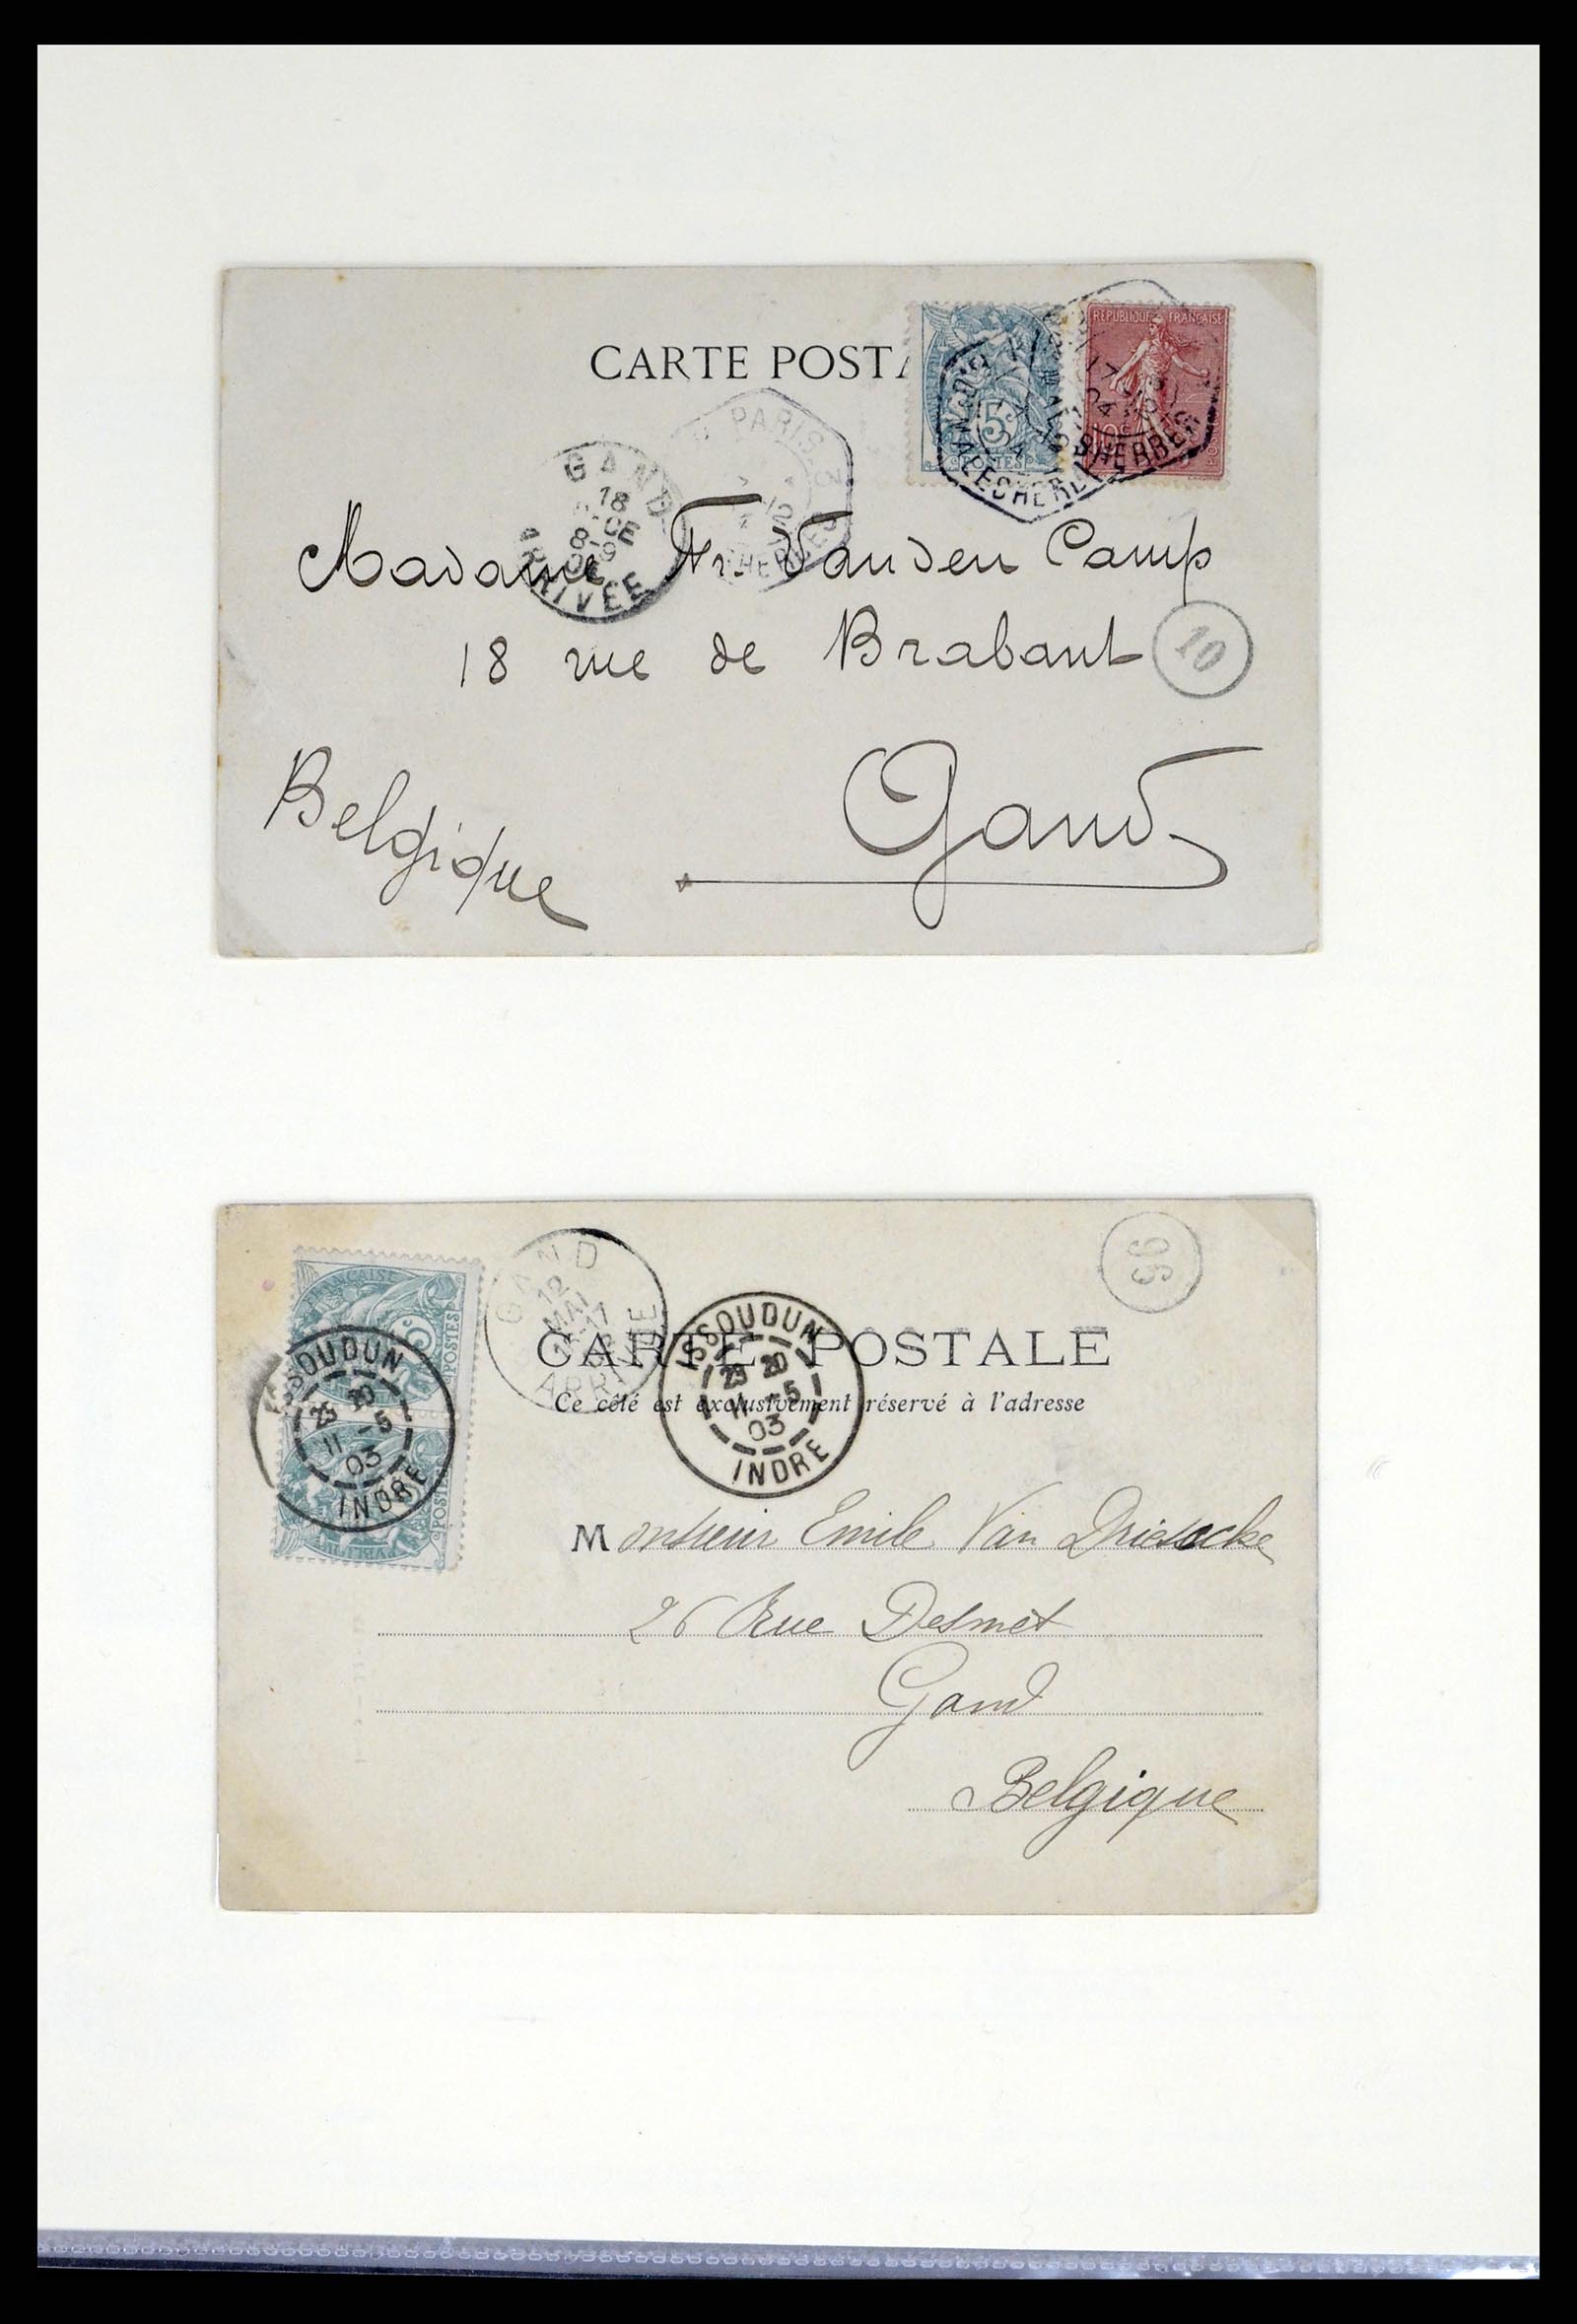 CARTE POSTA
5c
POSTES
REPUBLIQUE FRANÇAISE
10c
PARIS
GAND
18
8-9
ARRIVÉE
Madame Fr. Vanden Camp
18 rue de Brabant
10
Belgique
Gand
96
GAND
12
MAI
ARRIVÉE
FRANÇAISE
5c
POSTES
ISSOUDUN
11 -5
03
INDRE
ISSOUDUN
11 -5
03
INDRE
CARTE POSTALE
Ce côté est exclusivement réservé à l'adresse
Monsieur Emile Van
26 Rue Desmet
Gand
Belgique